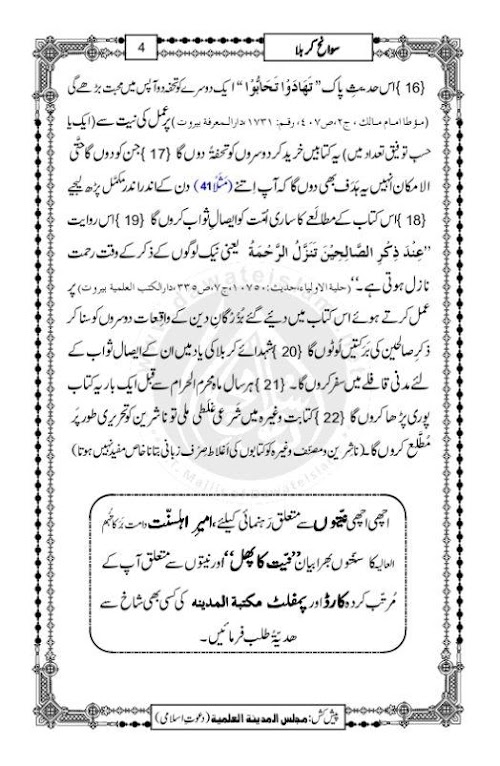 سوانحِ کربلا
4
{16} اس حدیثِ پاک ”تَهَادَوْا تَحَابُّوْا“ ایک دوسرے کو تحفہ دو آپس میں محبت بڑھے گی
(مؤطا امام مالک ، ج۲، ص۴۰۷، رقم: ۱۷۳۱، دارالمعرفة بیروت) پر عمل کی نیت سے (ایک یا
حسبِ توفیق تعداد میں) یہ کتابیں خرید کر دوسروں کو تحفۃً دوں گا {17} جن کو دوں گا حتَّی
الامکان انہیں یہ ہدف بھی دوں گا کہ آپ اتنے (مثلاً 41) دن کے اندر اندر مکمَّل پڑھ لیجئے
{18} اس کتاب کے مطالعے کا ساری اُمّت کو ایصالِ ثواب کروں گا {19} اس روایت
”عِنْدَ ذِكْرِ الصَّالِحِيْنَ تَنَزَّلُ الرَّحْمَةُ یعنی نیک لوگوں کے ذکر کے وقت رحمت
نازل ہوتی ہے۔“ (حلیة الاولیاء، حدیث: ۱۰۷۵۰، ج۷، ص۳۳۵، دارالکتب العلمیة بیروت) پر
عمل کرتے ہوئے اس کتاب میں دیئے گئے بُزُرگانِ دین کے واقعات دوسروں کو سنا کر
ذکرِ صالحین کی برکتیں لُوٹوں گا {20} شہدائے کربلا کی یاد میں ان کے ایصالِ ثواب کے
لئے مدنی قافلے میں سفر کروں گا۔ {21} ہر سال ماہِ محرم الحرام سے قبل ایک بار یہ کتاب
پوری پڑھا کروں گا {22} کتابت وغیرہ میں شرعی غلطی ملی تو ناشرین کو تحریری طور پر
مُطَّلع کروں گا۔ (ناشرین و مصنّف وغیرہ کو کتابوں کی اغلاط صرف زبانی بتانا خاص مفید نہیں ہوتا)
اچھی اچھی نیّتوں سے متعلق رَہنمائی کیلئے، امیرِ اہلسنّت دامت برکاتہم
العالیہ کا سنّتوں بھرا بیان ”نیّت کا پھل“ اور نیتوں سے متعلق آپ کے
مُرتَّب کردہ کارڈ اور پمفلٹ مکتبة المدینه کی کسی بھی شاخ سے
ھدیۃً طلب فرمائیں۔
پیش کش: مجلس المدینة العلمیة (دعوتِ اسلامی)